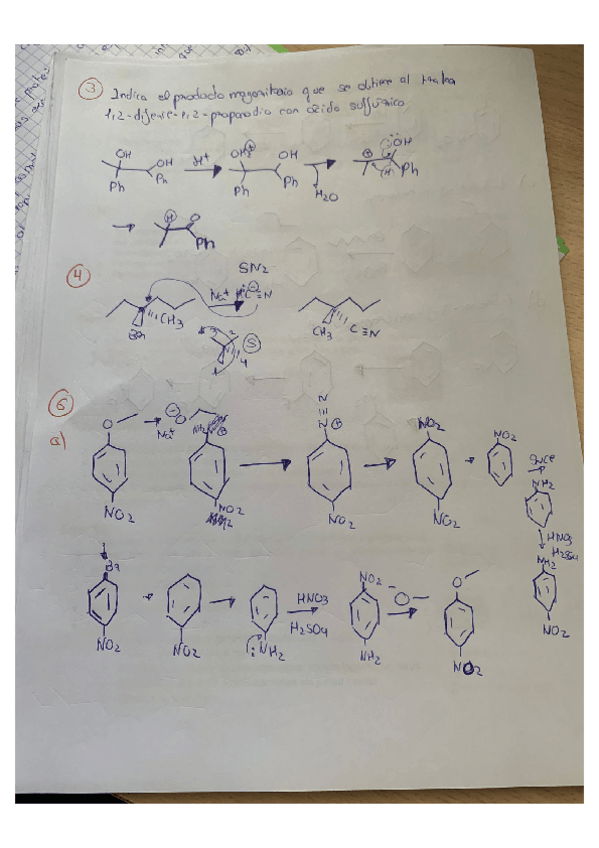 3 Indica el producto mayoritario que se obtiene al tratar
1,2-difenil-1,2-propanodio con ácido sulfúrico
OH OH H⁺ OH₂⁺ OH ⊕ OH
Ph Ph Ph Ph H₂O H Ph
H O
Ph
4
SN2
Na⁺ ⊖C≡N
CH3 Br CH3 C≡N
S
1 2 3 4
6
a)
O Na⁺ ⊖O NH₂ ⊕ N≡N ⊕ NO₂ NO₂
SnCl
NO₂ NO₂ NO₂ NO₂ NH₂
HNO₃
H₂SO₄
NH₂
NO₂
Br HNO₃ NO₂ ⁻O O
H₂SO₄
NO₂ NO₂ NH₂ NH₂ NO2